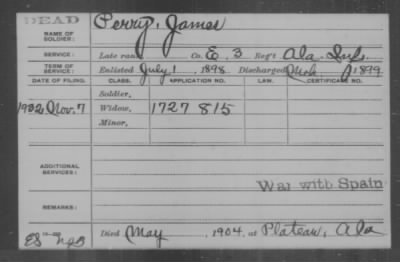 DEAD
NAME OF SOLDIER: Perry, James
SERVICE: Late rank Co. E, 3 Reg't Ala. Inf.
TERM OF SERVICE: Enlisted July 1, 1898 Discharged Mch 1899
DATE OF FILING. CLASS. APPLICATION NO. LAW. CERTIFICATE NO.
Soldier,
1932 Nov. 7 Widow, 1727 815
Minor,
ADDITIONAL SERVICES:
War with Spain
REMARKS:
Died May, 1904, at Plateau, Ala